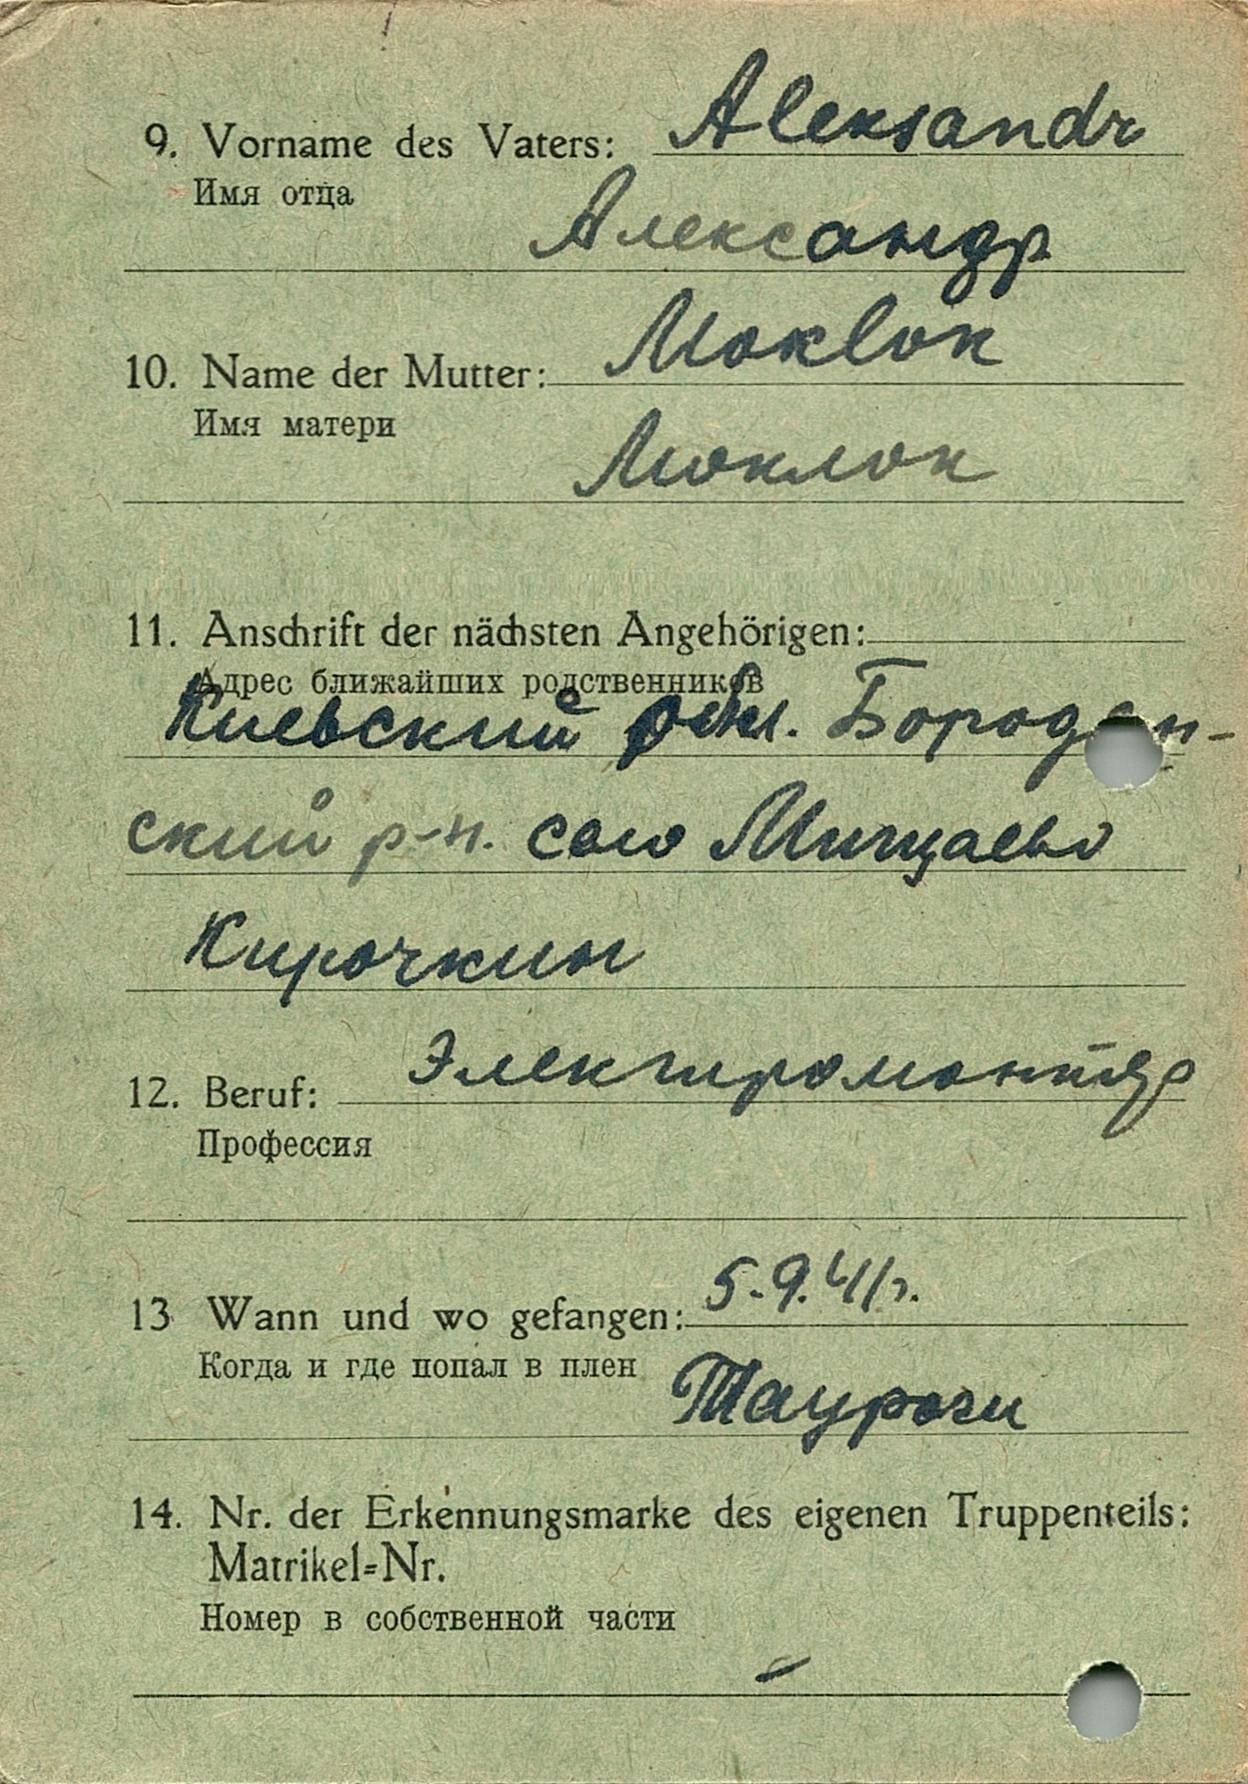 9. Vorname des Vaters: Aleksandr
Имя отца
Александр
10. Name der Mutter: Moklok
Имя матери
Моклок
11. Anschrift der nächsten Angehörigen:
Адрес ближайших родственников
Киевский обл. Бородян-
ский р-н. село Мищаево
Кирочкин
12. Beruf: Электромонтёр
Профессия
13 Wann und wo gefangen: 5.9.41 г.
Когда и где попал в плен
Тауроги
14. Nr. der Erkennungsmarke des eigenen Truppenteils:
Matrikel=Nr.
Номер в собственной части
–